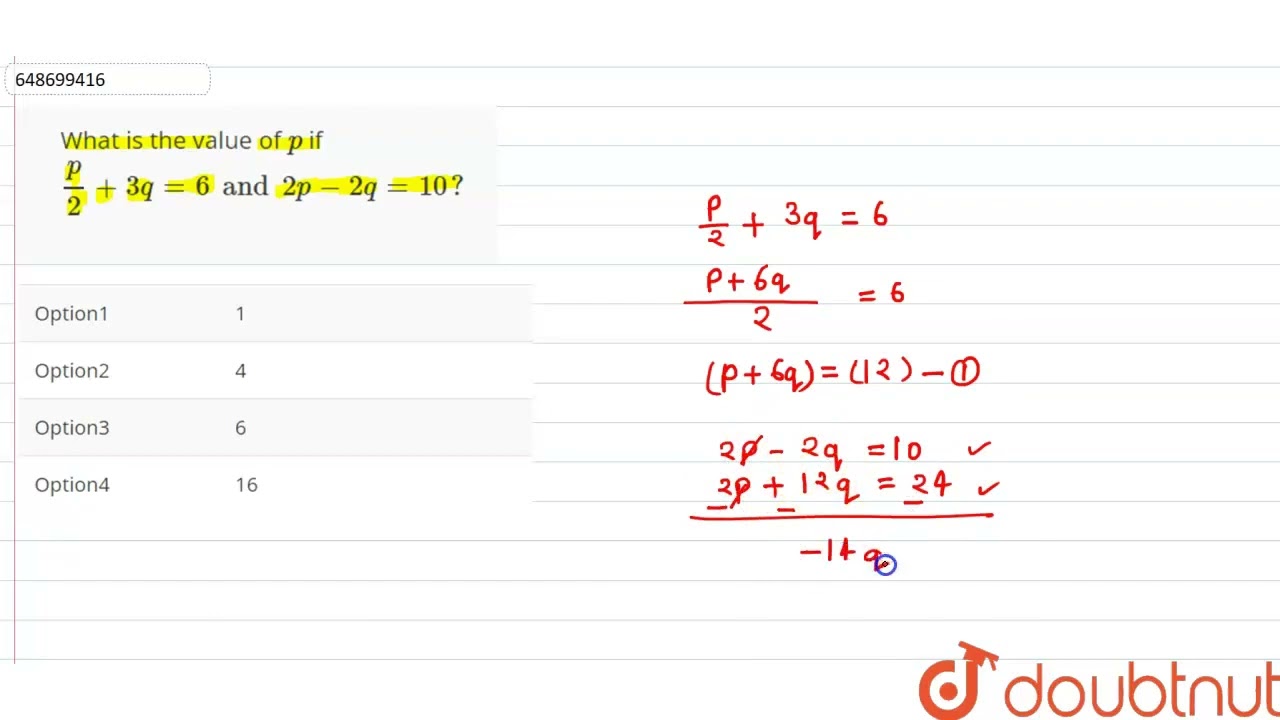 648699416
What is the value of p if
p/2 + 3q = 6 and 2p − 2q = 10?
Option1 1
Option2 4
Option3 6
Option4 16
p/2 + 3q = 6
p + 6q / 2 = 6
(p + 6q) = (12) — ①
2p − 2q = 10 ✓
2p + 12q = 24 ✓
− − −
−14q
doubtnut